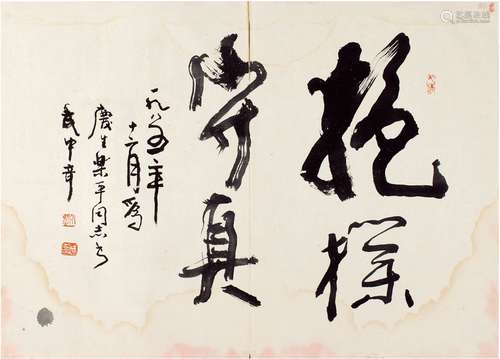 抱樸
守真
一九八五年
十二月為
慶生樂平同志書
武中奇